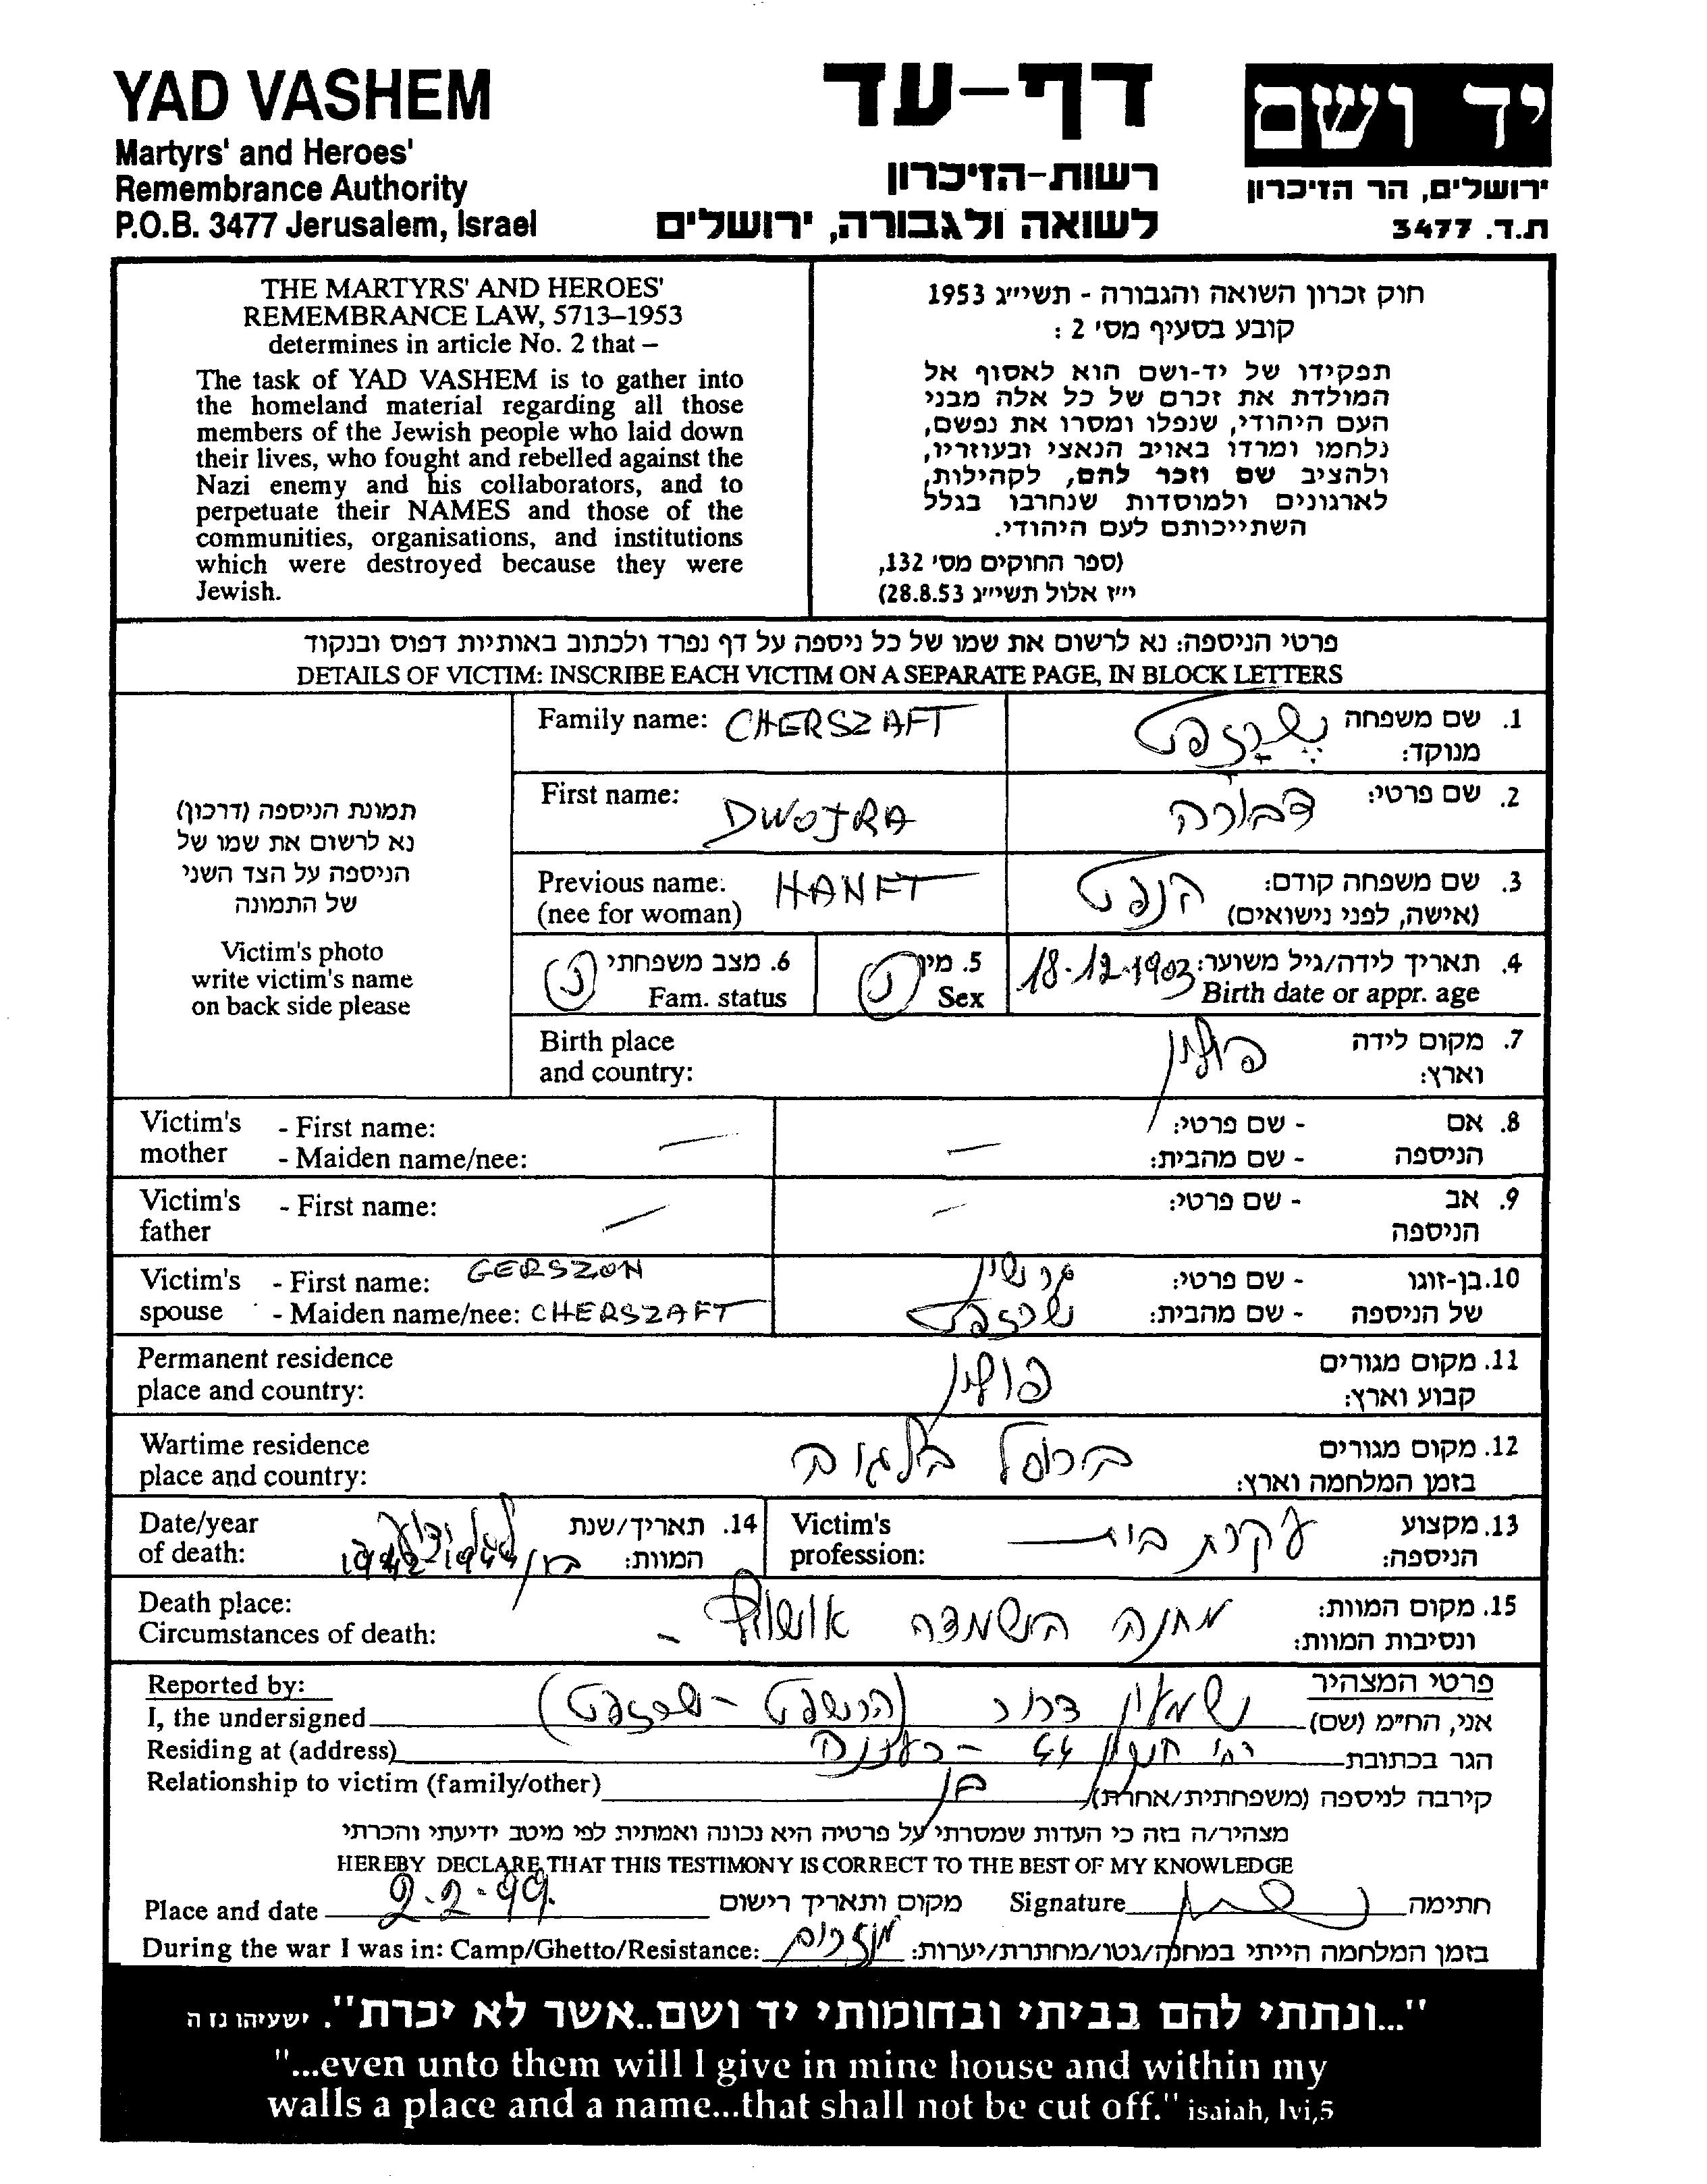 YAD VASHEM
Martyrs' and Heroes'
Remembrance Authority
P.O.B. 3477 Jerusalem, Israel
דף-עד
רשות-הזיכרון
לשואה ולגבורה, ירושלים
יד ושם
ירושלים, הר הזיכרון
ת.ד. 3477
THE MARTYRS' AND HEROES'
REMEMBRANCE LAW, 5713–1953
determines in article No. 2 that –
The task of YAD VASHEM is to gather into
the homeland material regarding all those
members of the Jewish people who laid down
their lives, who fought and rebelled against the
Nazi enemy and his collaborators, and to
perpetuate their NAMES and those of the
communities, organisations, and institutions
which were destroyed because they were
Jewish.
חוק זכרון השואה והגבורה - תשי"ג 1953
קובע בסעיף מס' 2 :
תפקידו של יד-ושם הוא לאסוף אל
המולדת את זכרם של כל אלה מבני
העם היהודי, שנפלו ומסרו את נפשם,
נלחמו ומרדו באויב הנאצי ובעוזריו,
ולהציב שם וזכר להם, לקהילות,
לארגונים ולמוסדות שנחרבו בגלל
השתייכותם לעם היהודי.
(ספר החוקים מס' 132,
י"ז אלול תשי"ג 28.8.53)
פרטי הניספה: נא לרשום את שמו של כל ניספה על דף נפרד ולכתוב באותיות דפוס ובנקוד
DETAILS OF VICTIM: INSCRIBE EACH VICTIM ON A SEPARATE PAGE, IN BLOCK LETTERS
תמונת הניספה (דרכון)
נא לרשום את שמו של
הניספה על הצד השני
של התמונה
Victim's photo
write victim's name
on back side please
Family name: CHERSZAFT
1. שם משפחה
מנוקד:
First name: DWOJRA
2. שם פרטי: דבורה
Previous name: HANFT
(nee for woman)
3. שם משפחה קודם: הנפט
(אישה, לפני נישואים)
6. מצב משפחתי נ
Fam. status
5. מין נ
Sex
4. תאריך לידה/גיל משוער: 18.12.1903
Birth date or appr. age
Birth place
and country:
7. מקום לידה פולין
וארץ:
Victim's mother - First name: —
- Maiden name/nee:
8. אם הניספה - שם פרטי: —
- שם מהבית:
Victim's father - First name: —
9. אב הניספה - שם פרטי: —
Victim's spouse - First name: GERSZON
- Maiden name/nee: CHERSZAFT
10. בן-זוגו של הניספה - שם פרטי: גרשון
- שם מהבית:
Permanent residence
place and country:
11. מקום מגורים פולין
קבוע וארץ:
Wartime residence
place and country:
12. מקום מגורים בריסל בלגיה
בזמן המלחמה וארץ:
Date/year
of death:
14. תאריך/שנת
המוות: 1942-1944
Victim's
profession:
13. מקצוע עקרת בית
הניספה:
Death place:
Circumstances of death:
15. מקום המוות: מחנה השמדה אושוויץ
ונסיבות המוות:
Reported by:
I, the undersigned
Residing at (address)
Relationship to victim (family/other)
פרטי המצהיר
אני, הח"מ (שם)
הגר בכתובת 44 - רעננה
קירבה לניספה (משפחתית/אחרת) בן
מצהיר/ה בזה כי העדות שמסרתי על פרטיה היא נכונה ואמתית לפי מיטב ידיעתי והכרתי
HEREBY DECLARE THAT THIS TESTIMONY IS CORRECT TO THE BEST OF MY KNOWLEDGE
Place and date 2.2.99. מקום ותאריך רישום Signature חתימה
During the war I was in: Camp/Ghetto/Resistance: בזמן המלחמה הייתי במחנה/גטו/מחתרת/יערות:
"...ונתתי להם בביתי ובחומותי יד ושם..אשר לא יכרת". ישעיהו נז ה
"...even unto them will I give in mine house and within my
walls a place and a name...that shall not be cut off." isaiah, lvi,5